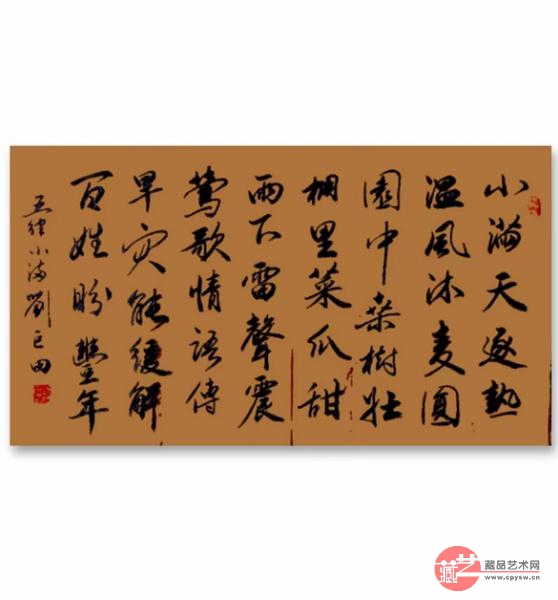 小满天逐熱
温風沐麦圓
園中桑樹壮
棚里菜瓜甜
雨下雷聲震
莺歌情语傳
旱灾能缓解
百姓盼豐年
五律小满劉已田
藏艺
藏品艺术网
www.cpysw.cn